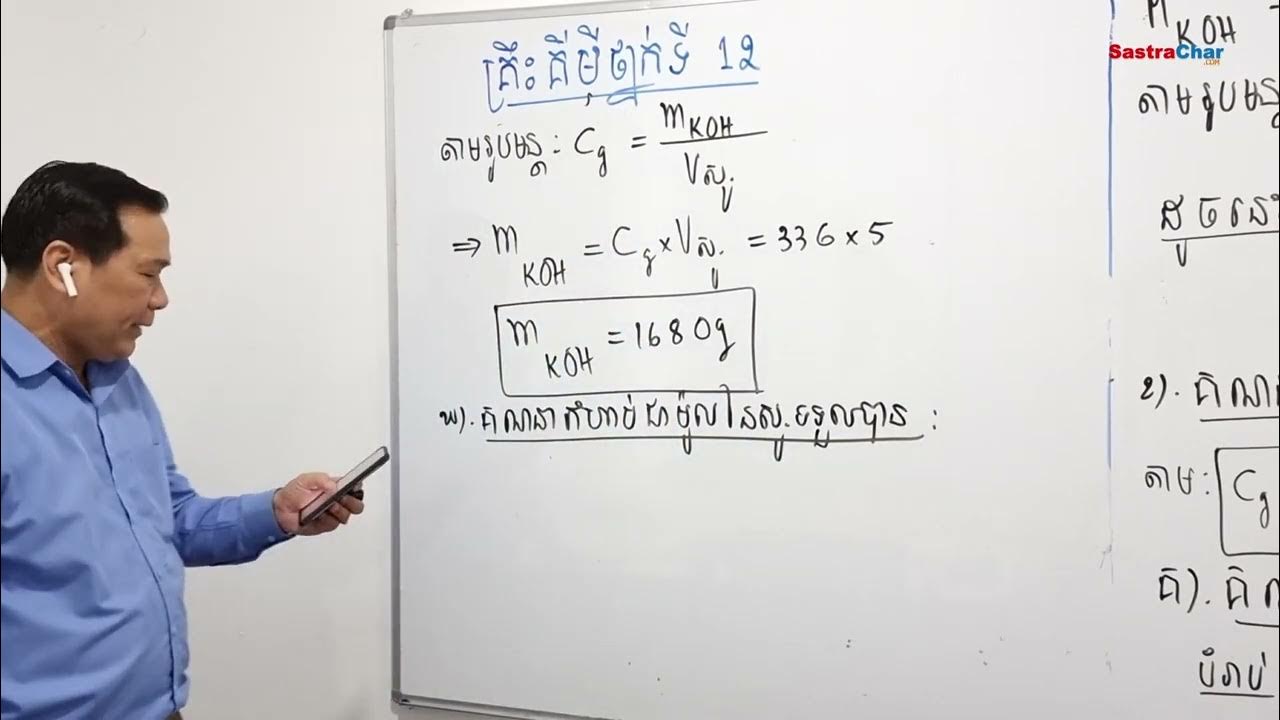 គ្រឹះគីមីថ្នាក់ទី 12
តាមរូបមន្ត: Cg = mKOH / Vសូ.
⇒ mKOH = Cg × Vសូ. = 336 × 5
mKOH = 1680g
ឃ). គណនាកំហាប់ជាម៉ូលនៃសូ.ទទួលបាន :
mKOH
SastraChar
.COM
តាមរូបមន្ត
ដូចនេះ
2). គណនា
តាម: Cg
គ). គិត
បំរាប់